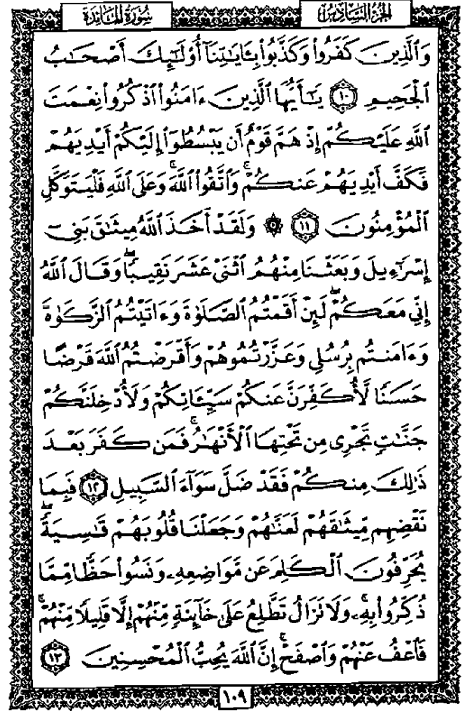 الجزء السادس
سورة المائدة
وَالَّذِينَ كَفَرُوا۟ وَكَذَّبُوا۟ بِـَٔايَـٰتِنَآ أُو۟لَـٰٓئِكَ أَصْحَـٰبُ
ٱلْجَحِيمِ ١٠ يَـٰٓأَيُّهَا ٱلَّذِينَ ءَامَنُوا۟ ٱذْكُرُوا۟ نِعْمَتَ
ٱللَّهِ عَلَيْكُمْ إِذْ هَمَّ قَوْمٌ أَن يَبْسُطُوٓا۟ إِلَيْكُمْ أَيْدِيَهُمْ
فَكَفَّ أَيْدِيَهُمْ عَنكُمْ ۖ وَٱتَّقُوا۟ ٱللَّهَ ۚ وَعَلَى ٱللَّهِ فَلْيَتَوَكَّلِ
ٱلْمُؤْمِنُونَ ١١ ۞ وَلَقَدْ أَخَذَ ٱللَّهُ مِيثَـٰقَ بَنِىٓ
إِسْرَٰٓءِيلَ وَبَعَثْنَا مِنْهُمُ ٱثْنَىْ عَشَرَ نَقِيبًا ۖ وَقَالَ ٱللَّهُ
إِنِّى مَعَكُمْ ۖ لَئِنْ أَقَمْتُمُ ٱلصَّلَوٰةَ وَءَاتَيْتُمُ ٱلزَّكَوٰةَ
وَءَامَنتُم بِرُسُلِى وَعَزَّرْتُمُوهُمْ وَأَقْرَضْتُمُ ٱللَّهَ قَرْضًا
حَسَنًا لَّأُكَفِّرَنَّ عَنكُمْ سَيِّـَٔاتِكُمْ وَلَأُدْخِلَنَّكُمْ
جَنَّـٰتٍ تَجْرِى مِن تَحْتِهَا ٱلْأَنْهَـٰرُ ۚ فَمَن كَفَرَ بَعْدَ
ذَٰلِكَ مِنكُمْ فَقَدْ ضَلَّ سَوَآءَ ٱلسَّبِيلِ ١٢ فَبِمَا
نَقْضِهِم مِّيثَـٰقَهُمْ لَعَنَّـٰهُمْ وَجَعَلْنَا قُلُوبَهُمْ قَـٰسِيَةً ۖ
يُحَرِّفُونَ ٱلْكَلِمَ عَن مَّوَاضِعِهِۦ ۙ وَنَسُوا۟ حَظًّا مِّمَّا
ذُكِّرُوا۟ بِهِۦ ۚ وَلَا تَزَالُ تَطَّلِعُ عَلَىٰ خَآئِنَةٍ مِّنْهُمْ إِلَّا قَلِيلًا مِّنْهُمْ ۖ
فَٱعْفُ عَنْهُمْ وَٱصْفَحْ ۚ إِنَّ ٱللَّهَ يُحِبُّ ٱلْمُحْسِنِينَ ١٣
١٠٩